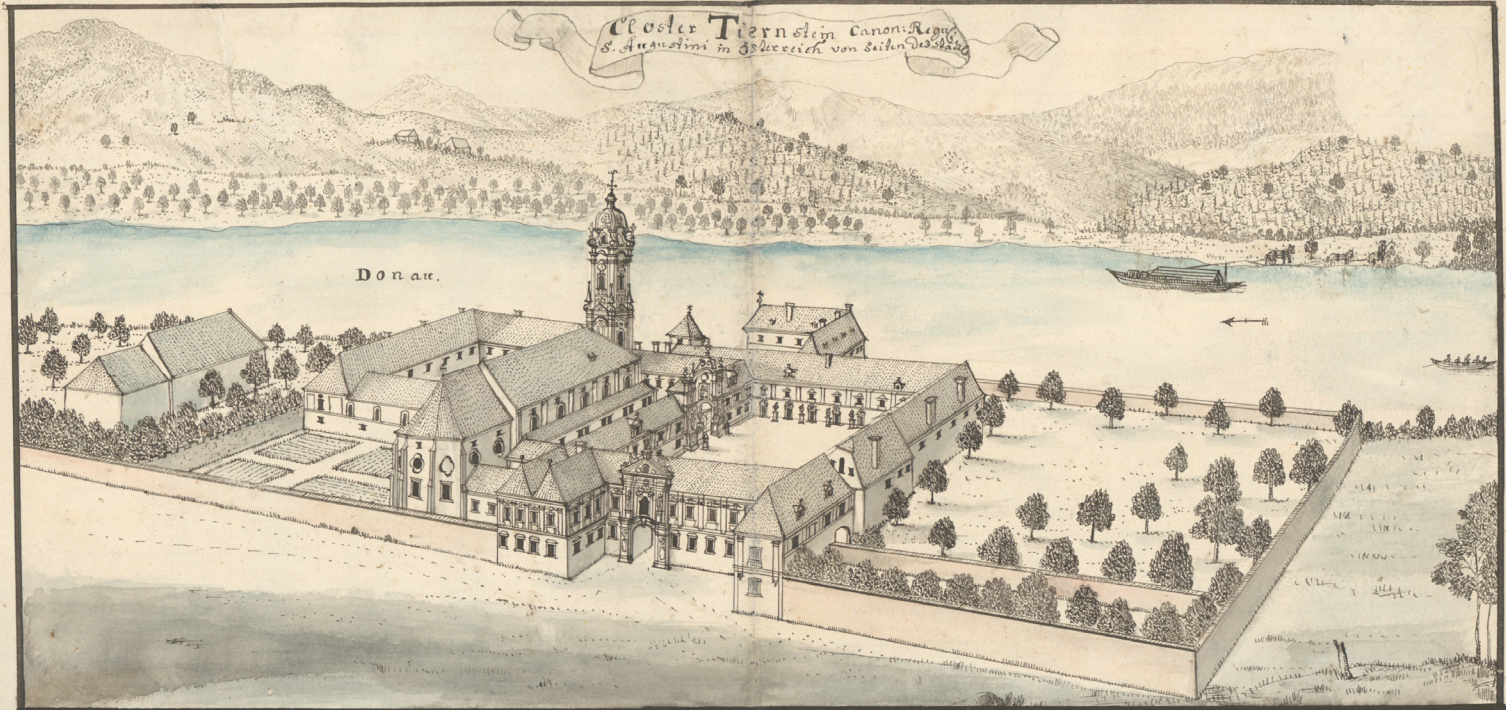 Closter Tiernstein Canon: Regul:
S. Augustini in Österreich von Seiten des
Donau.